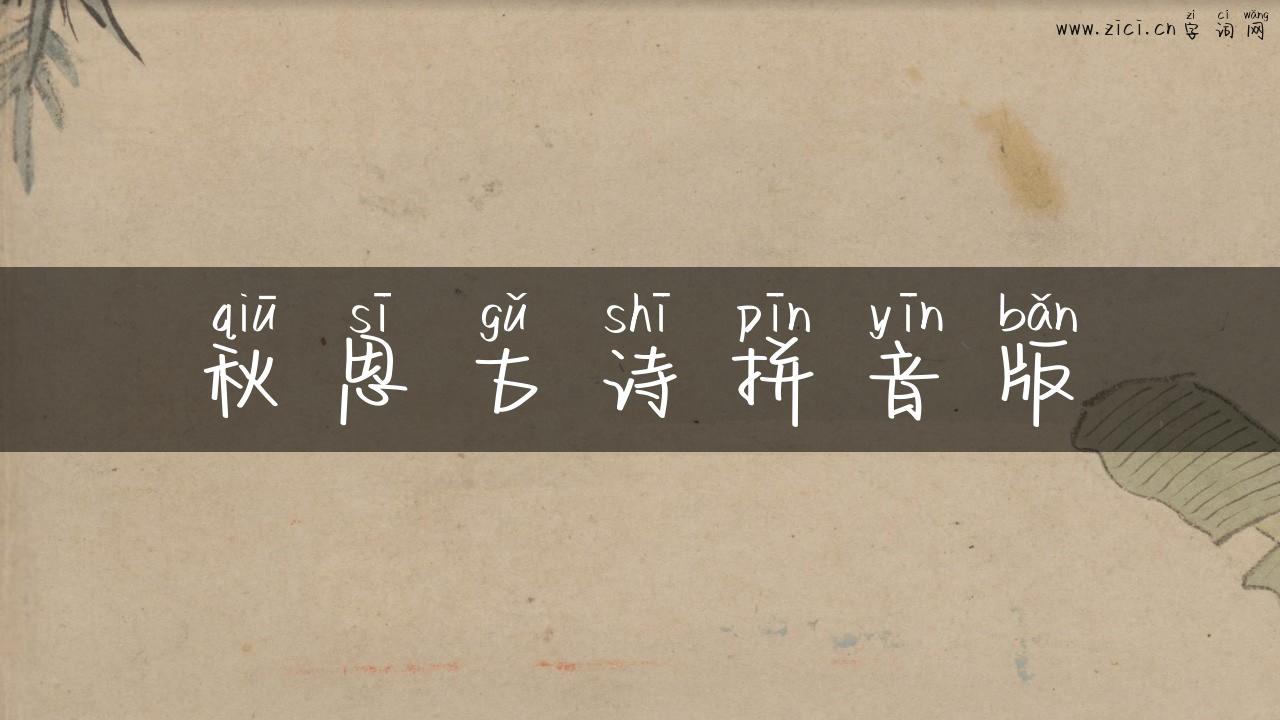 zì cí wǎng
www.zici.cn 字 词 网
qiū sī gǔ shī pīn yīn bǎn
秋 思 古 诗 拼 音 版